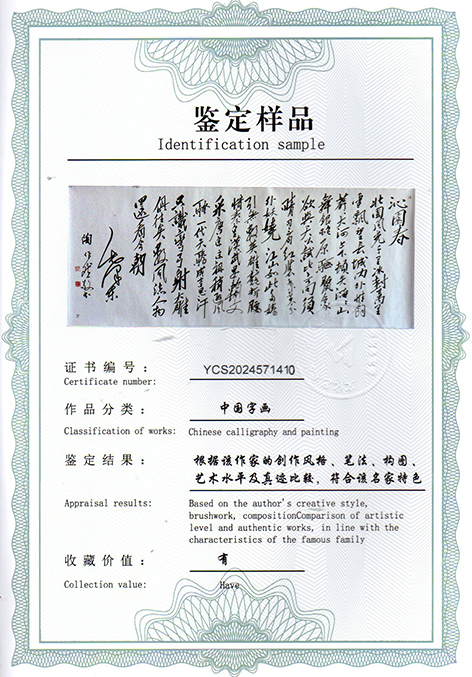 鉴定样品
Identification sample
沁园春
北国风光千里冰封万里
雪飘望长城内外惟馀
莽莽大河上下顿失滔滔山
舞银蛇原驰蜡象
欲与天公试比高须
晴日看红装素裹
分外妖娆江山如此多娇
引无数英雄竞折腰
惜秦皇汉武略输文
采唐宗宋祖稍逊风
骚一代天骄成吉思汗
只识弯弓射大雕
俱往矣数风流人物
还看今朝
毛泽东
证书编号：
Certificate number:
YCS2024571410
作品分类：
中国字画
Classification of works:
Chinese calligraphy and painting
鉴定结果：
根据该作家的创作风格、笔法、构图、
艺术水平及真迹比较，符合该名家特色
Appraisal results:
Based on the author's creative style,
brushwork, compositionComparison of artistic
level and authentic works, in line with the
characteristics of the famous family
收藏价值：
有
Collection value:
Have